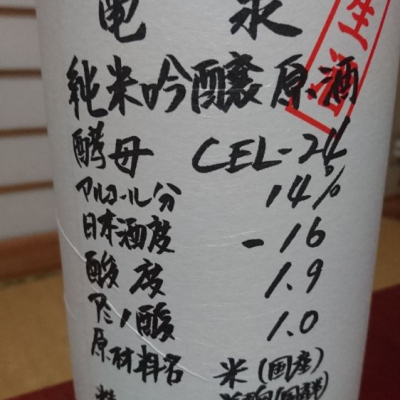 亀泉
純米吟醸原酒
生酒
酵母 CEL-24
アルコール分 14%
日本酒度 -16
酸度 1.9
アミノ酸 1.0
原材料名 米(国産)